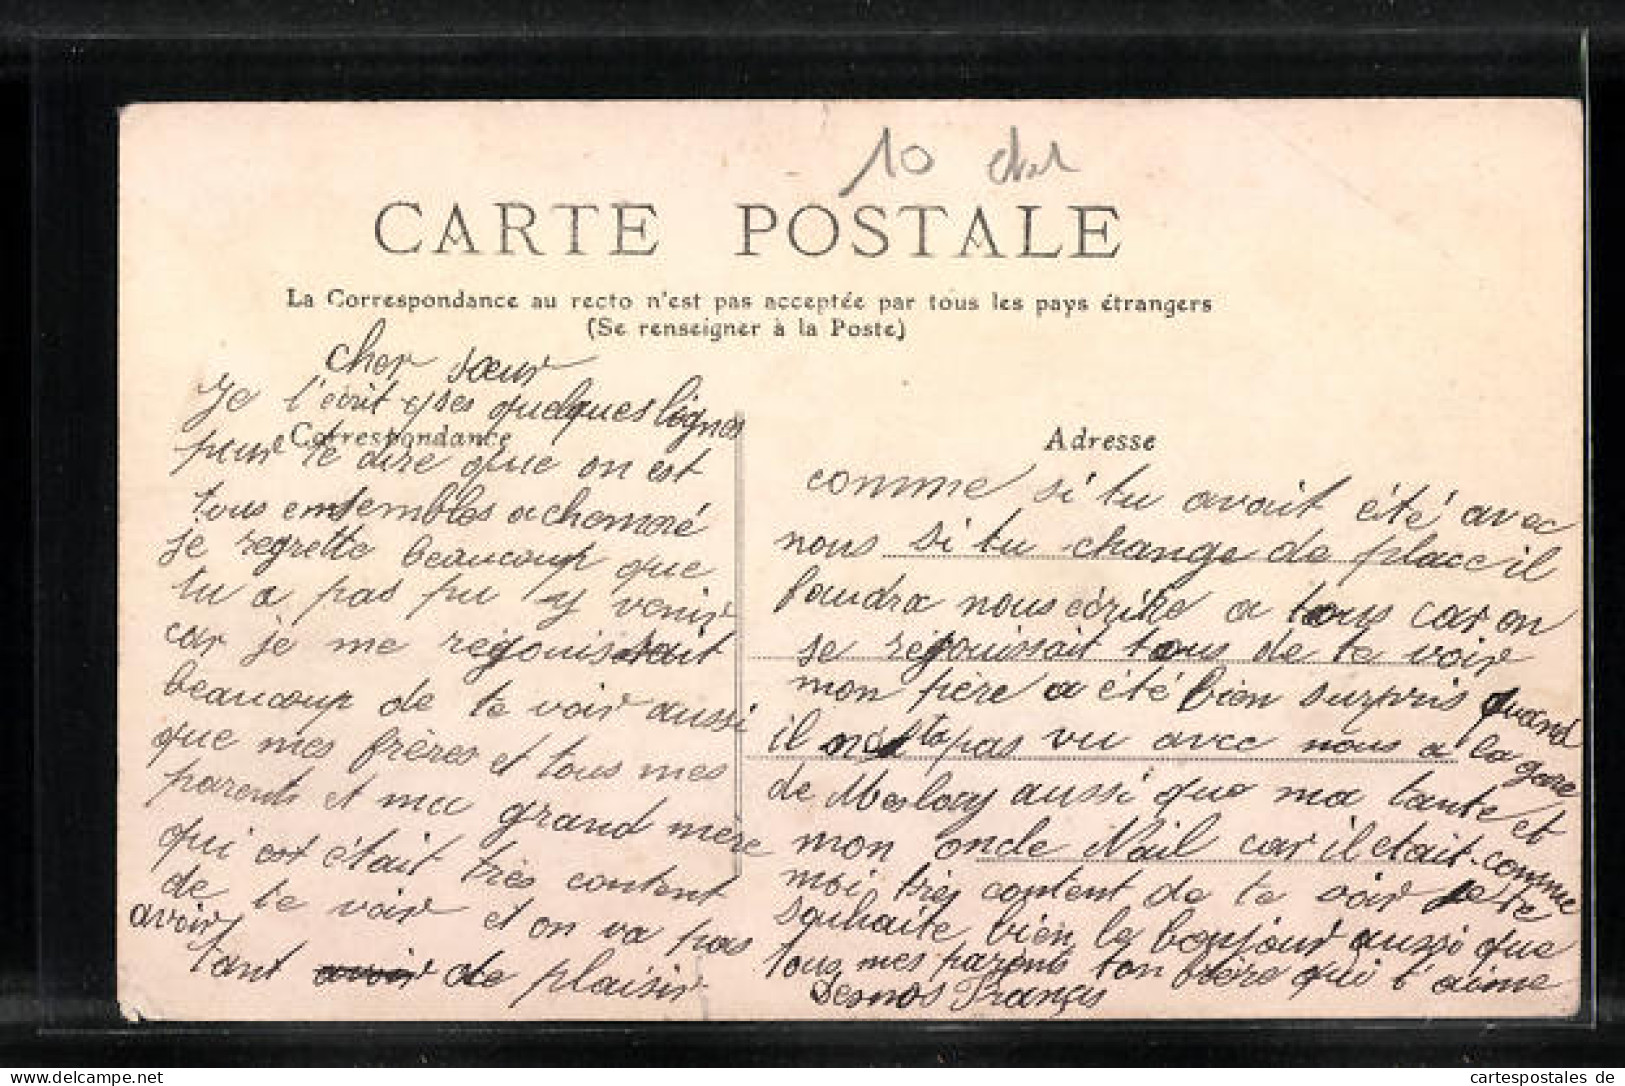 10
CARTE POSTALE
La Correspondance au recto n'est pas acceptée par tous les pays étrangers
(Se renseigner à la Poste)
cher sœur
Je t'écrit quelques lignes
Correspondance
pour te dire que on est
tous ensembles a chemazé
je regrette beaucoup que
tu a pas pu y venir
car je me rejouissait
beaucoup de te voir aussi
que mes frères et tous mes
parents et ma grand mere
qui est était très content
de te voir et on va pas
avoir
tant avoir de plaisir
Adresse
comme si tu avait été avec
nous si tu change de place il
faudra nous écrire a tous car on
se rejouissait tous de te voir
mon père a été bien surpris quand
il pas vu avec nous a la gare
de Meslay aussi que ma tante et
mon oncle Nail car il etait comme
moi très content de te voir je te
souhaite bien le bonjour aussi que
tous mes parents ton frère qui t'aime
Desnos Françis
cartespostales de